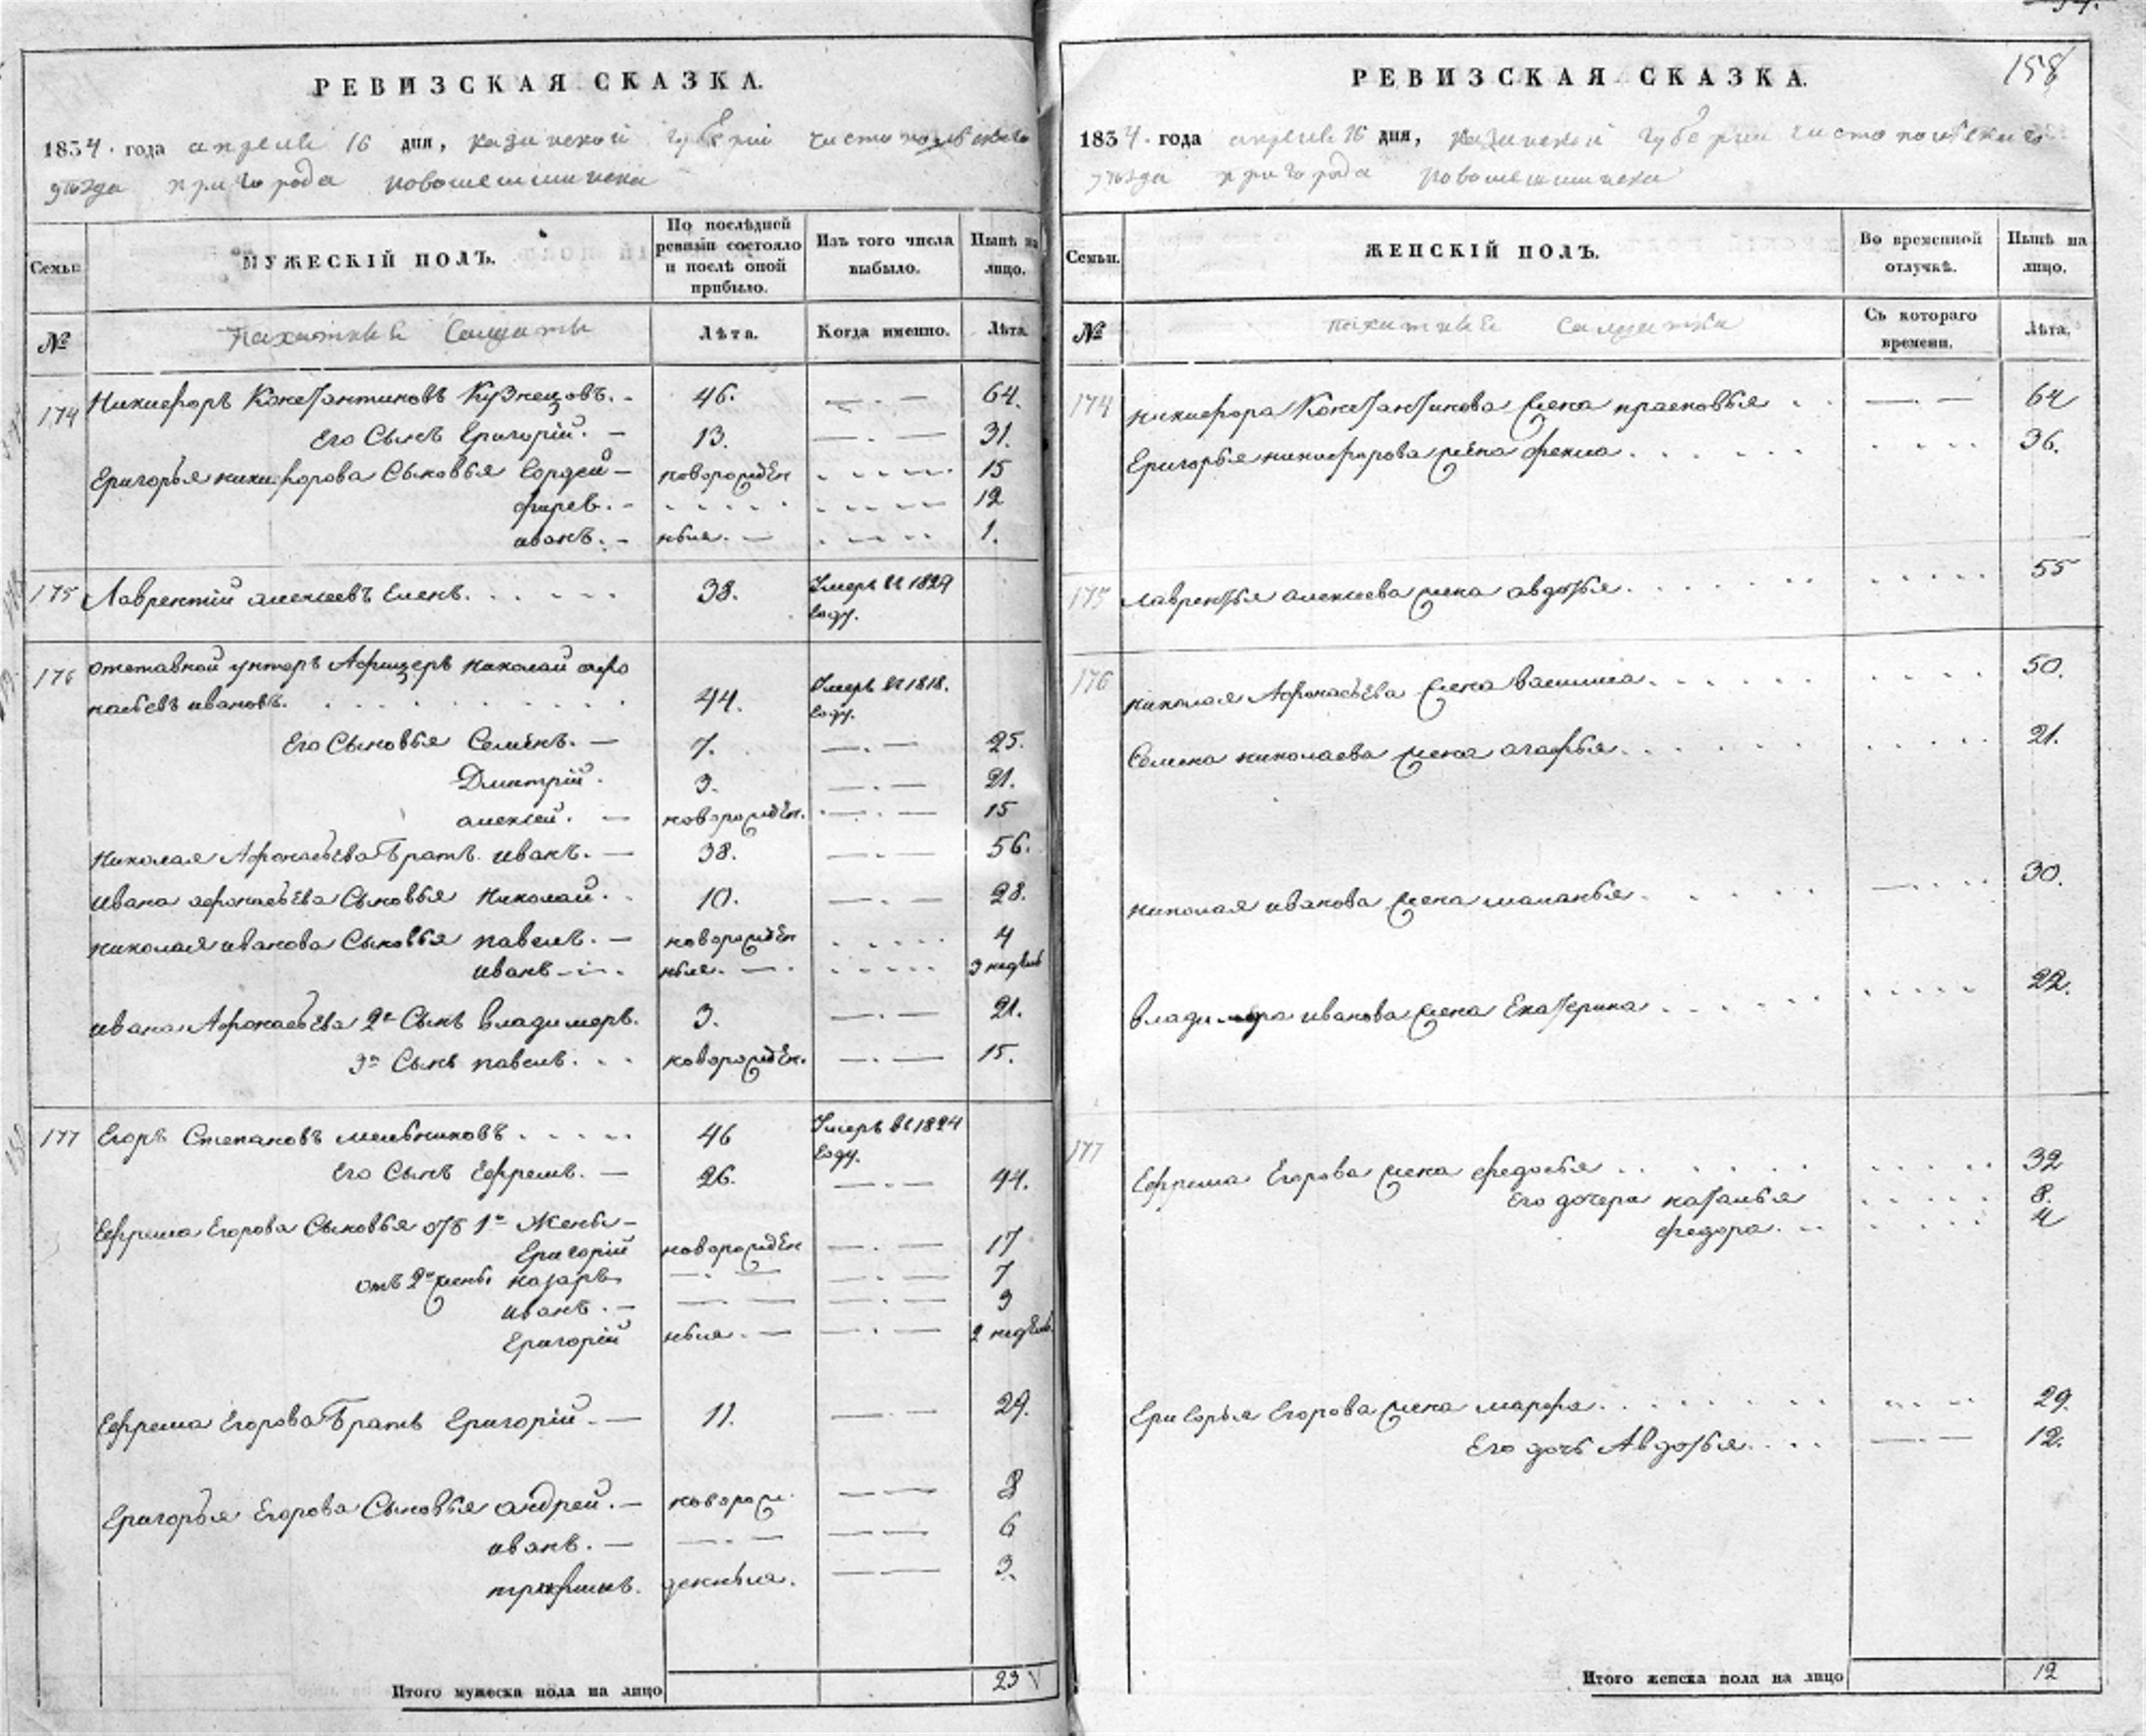 РЕВИЗСКАЯ СКАЗКА.
1834 года апреля 16 дня, казанской губернии чистопольского
уѣзда пригорода новошешминска
Семьи № МУЖЕСКІЙ ПОЛЪ. По послѣдней ревизіи состояло и послѣ оной прибыло. Изъ того числа выбыло. Нынѣ на лицо.
Пахатные Солдаты Лѣта. Когда именно. Лѣта.
174 Никифоръ Константиновъ Кузнецовъ. 46. 64.
Его Сынъ Григорій. 13. 31.
Григорья никифорова Сыновья Гордей новорожден 15
12
иванъ. ныя. 1.
175 Лаврентій алексеевъ 38. Умеръ въ 1829
году.
176 отставной унтеръ Афицеръ николай афо
насьевъ ивановъ. 44. Умеръ въ 1818.
году.
Его Сыновья Семёнъ. 7. 25.
Дмитрій. 3. 21.
алексей. новорожден. 15
Николая Афонасьева братъ иванъ. 38. 56.
ивана афонасьева Сыновья Николай. 10. 28.
николая иванова Сыновья павелъ. новорожден 4
иванъ ныя. 3 недѣль
ивана Афонасьева 2й Сынъ владимеръ. 3. 21.
3й Сынъ павелъ. новорожден. 15.
177 Егоръ Степановъ мельниковъ 46 Умеръ въ 1824
году.
Его Сынъ Ефремъ. 26. 44.
Ефрема Егорова Сыновья отъ 1й Жены
Григорій новорожден 17
отъ 2й жены назаръ 7
иванъ. 3
Григорій ныя. 2 недѣль
Ефрема Егорова братъ Григорій. 11. 29.
Григорья Егорова Сыновья андрей. новорож 8
иванъ. 6
трофимъ. денныя. 3.
Итого мужеска пола на лицо 23
158
РЕВИЗСКАЯ СКАЗКА.
1834 года апреля 16 дня, казанской губернии чистопольского
уѣзда пригорода новошешминска
Семьи. № ЖЕНСКІЙ ПОЛЪ. Во временной отлучкѣ. Нынѣ на лицо.
пахатные Солдатки Съ котораго времени. Лѣта.
174 никифора Константинова жена прасковья 64
Григорья никифорова жена фекла 36.
175 лаврентья алексеева жена авдотья. 55
176 николая Афонасьева жена василиса. 50.
Семена николаева жена агафья. 21.
николая иванова жена маланья. 30.
владимера иванова жена Екатерина 22.
177 Ефрема Егорова жена федосья 32
Его дочери наталья 8.
федора. 4
Григорья Егорова жена марфа. 29.
Его дочь Авдотья. 12.
Итого женска пола на лицо 12